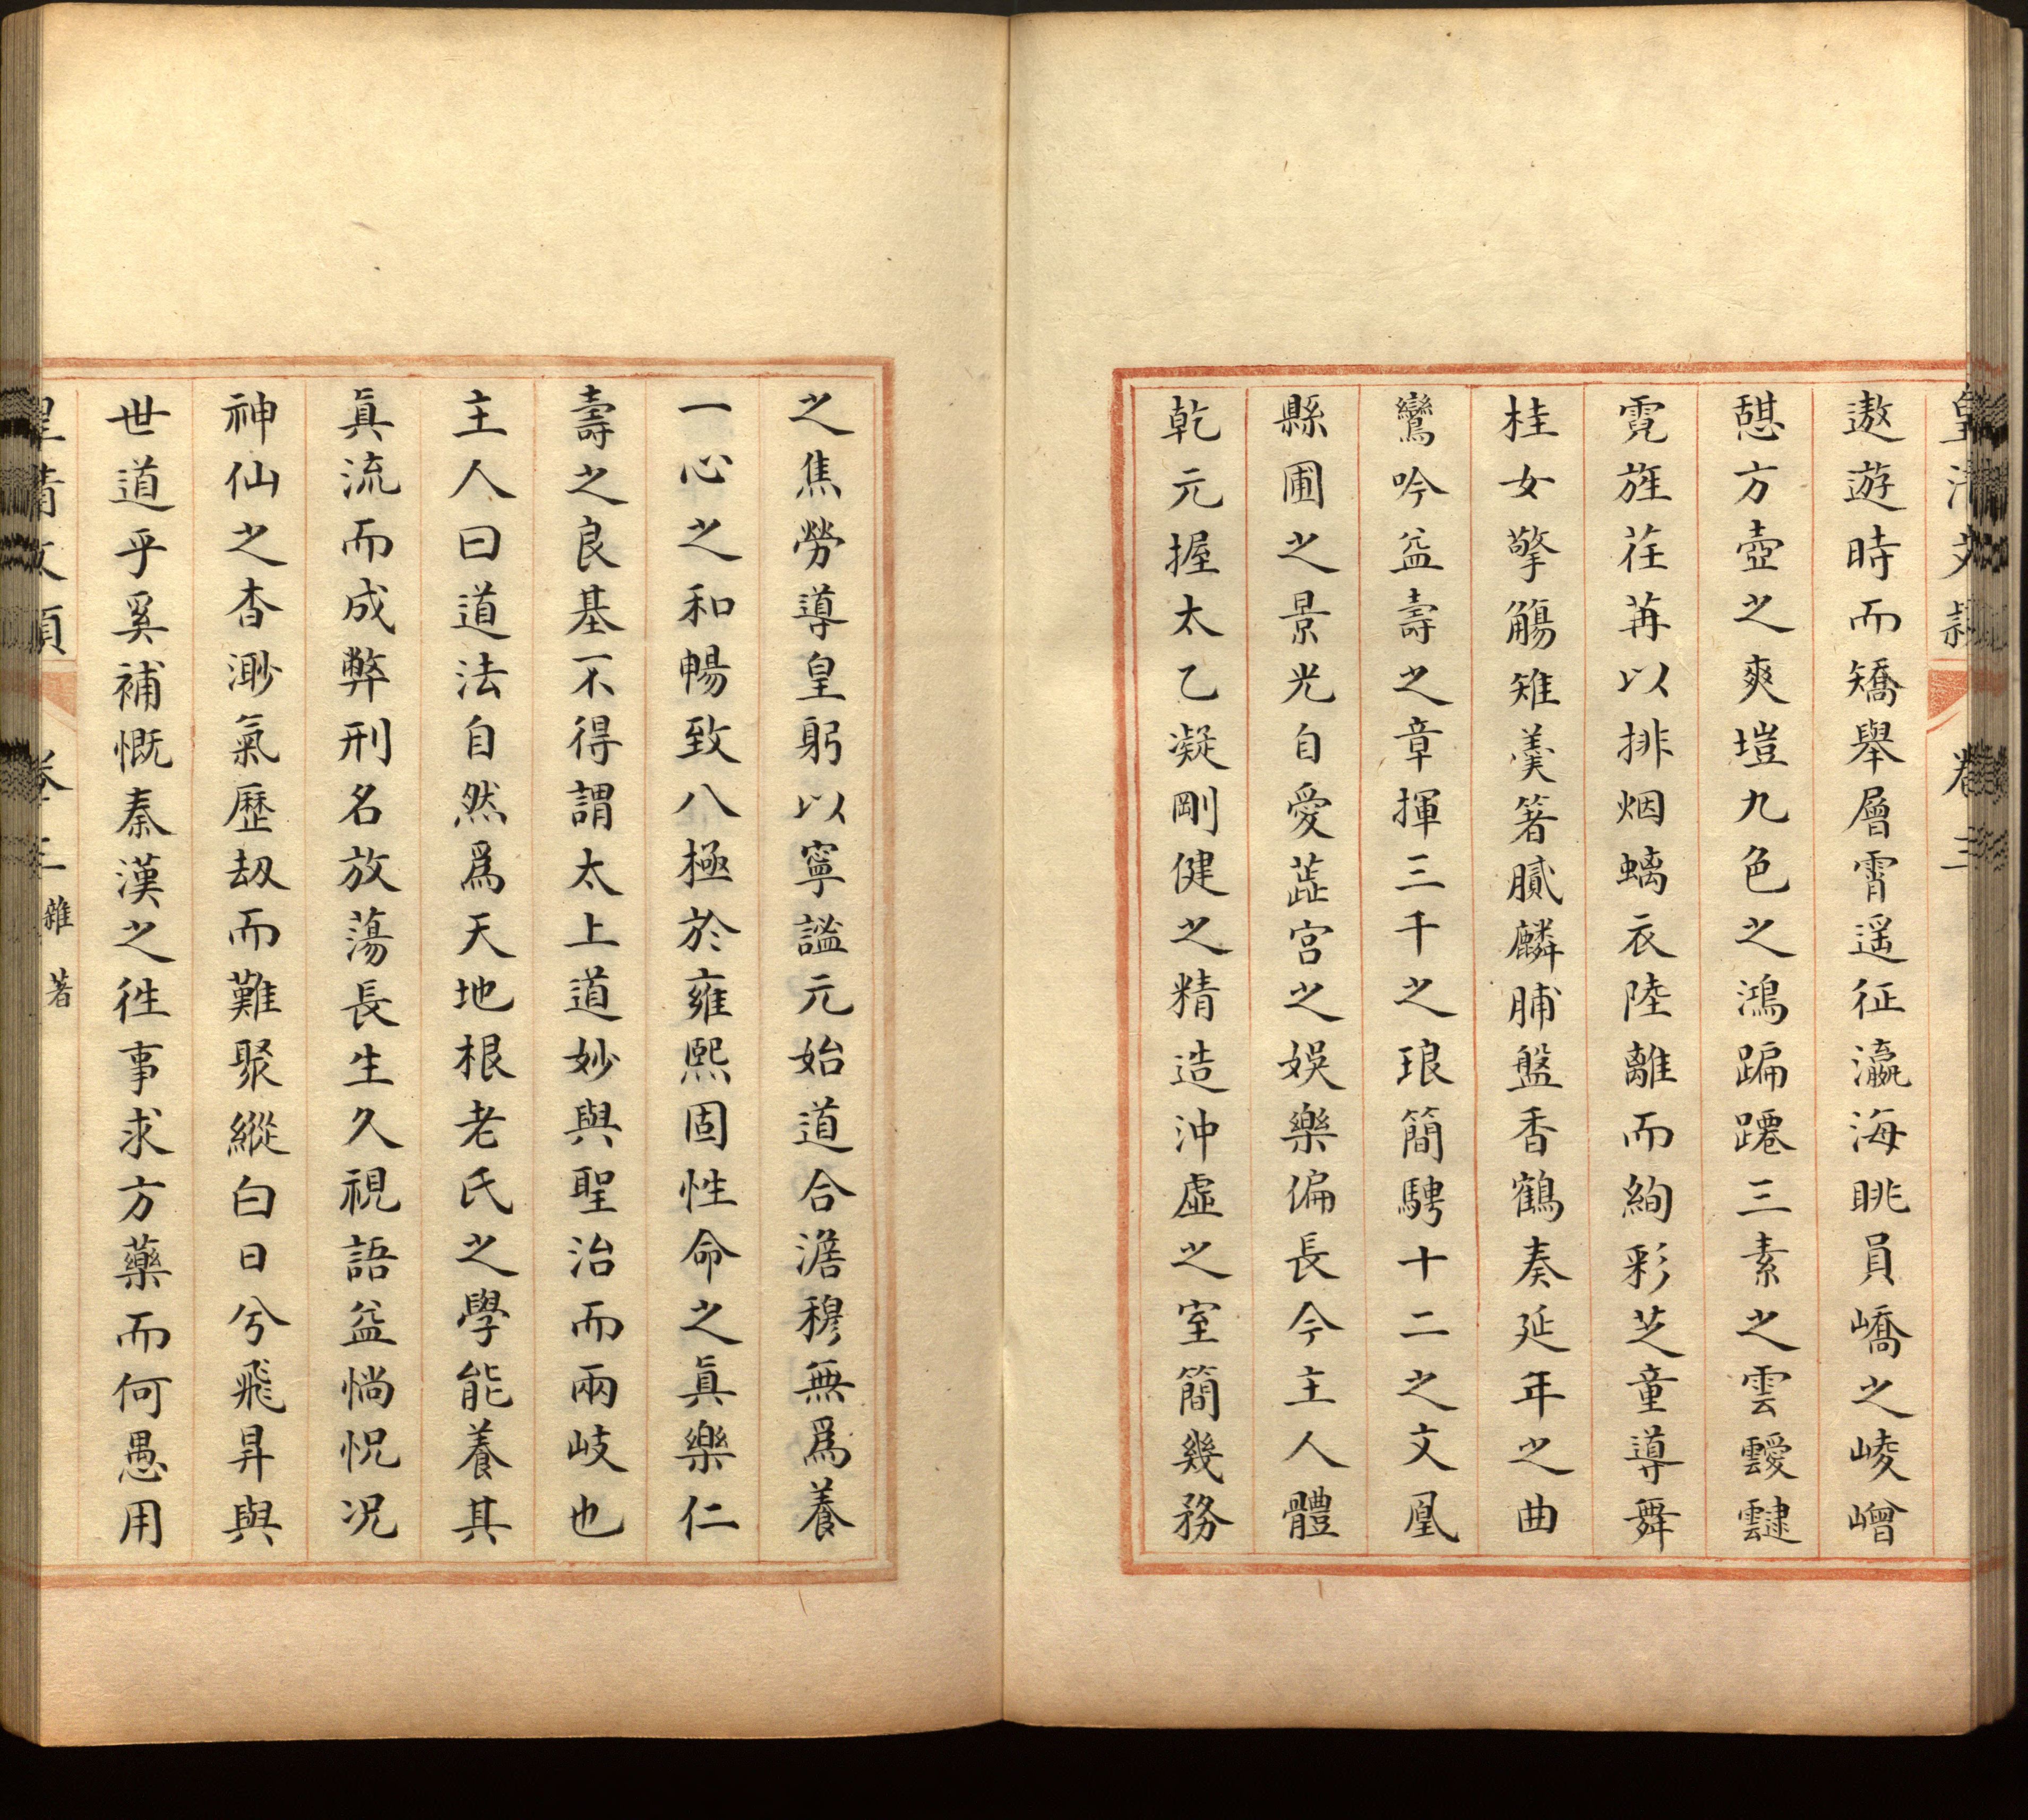 皇清文穎 卷三
遨遊時而矯舉層霄遥征瀛海眺員嶠之崚嶒
憇方壺之爽塏九色之鴻蹁躚三素之雲靉靆
霓旌荏苒以排烟螭衣陸離而絢彩芝童導舞
桂女擎觴雉羹箸膩麟脯盤香鶴奏延年之曲
鸞吟益壽之章揮三千之琅簡騁十二之文凰
縣圃之景光自愛蕋宫之娛樂偏長今主人體
乾元握太乙凝剛健之精造沖虛之室簡幾務
之焦勞導皇躬以寧謐元始道合澹穆無爲養
一心之和暢致八極於雍熙固性命之眞樂仁
壽之良基不得謂太上道妙與聖治而兩岐也
主人曰道法自然爲天地根老氏之學能養其
眞流而成弊刑名放蕩長生久視語益惝怳况
神仙之杳渺氣歷刼而難聚縱白日兮飛昇與
世道乎奚補慨秦漢之徃事求方藥而何愚用
皇清文穎 卷三 雜著